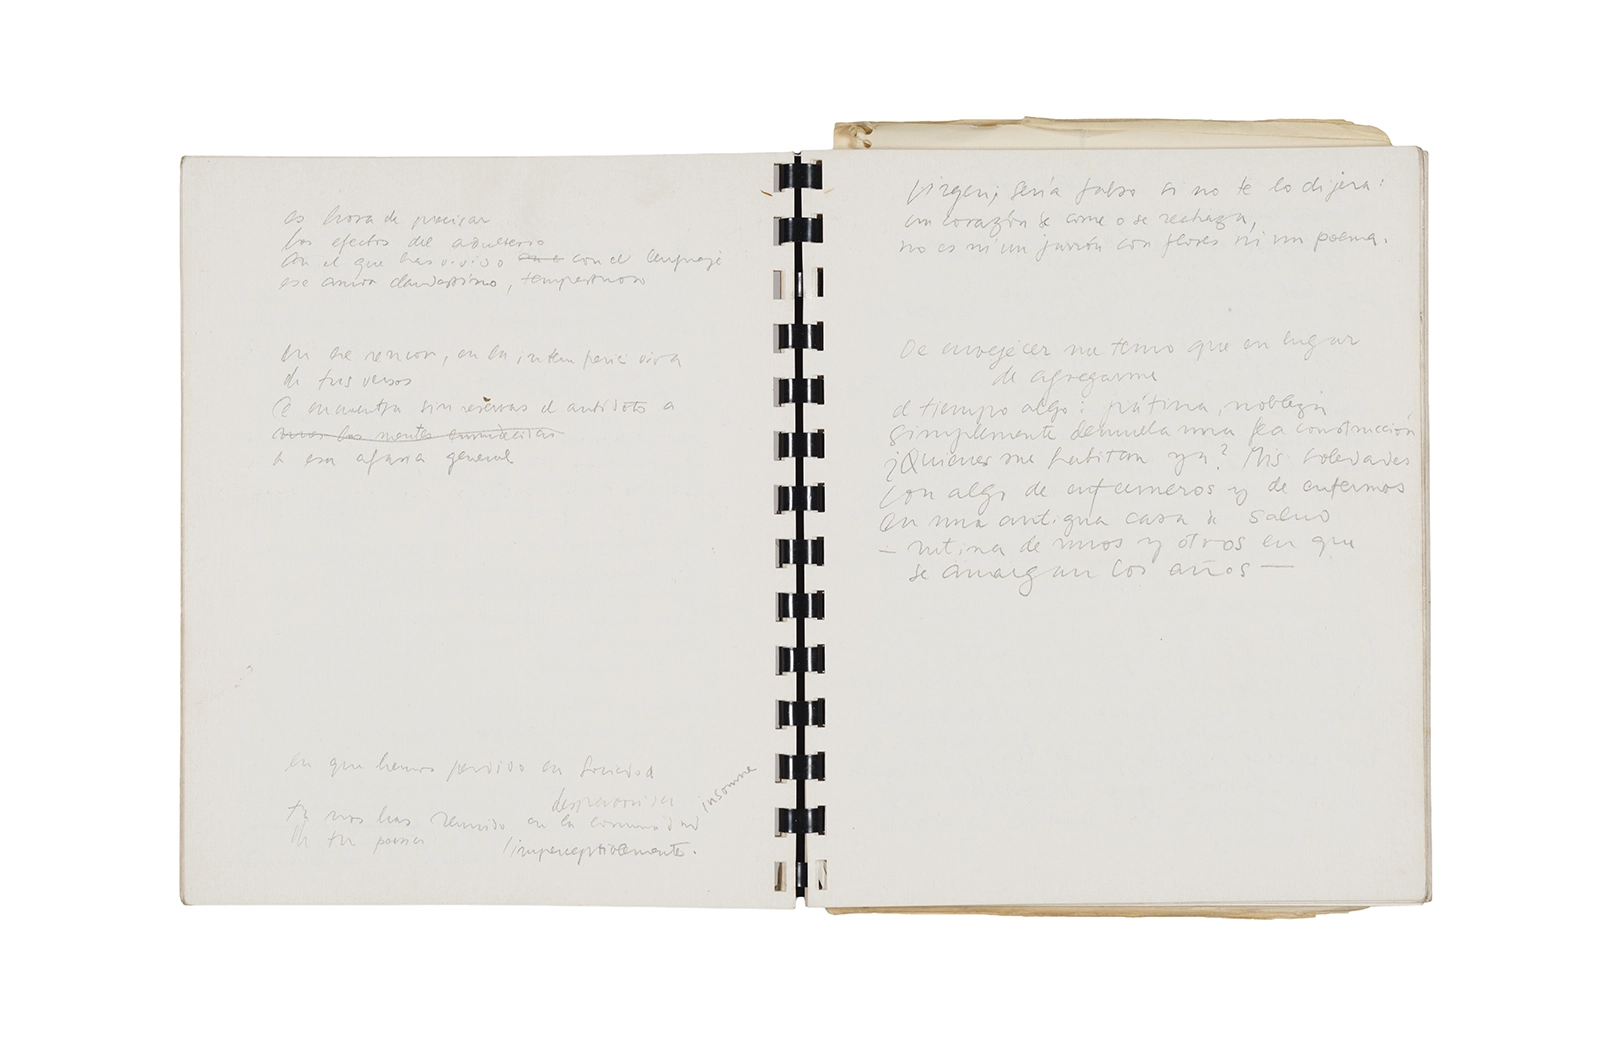 es hora de precisar
los efectos del adulterio
en el que has vivido con el lenguaje
ese amor clandestino, tempestuoso
En ese rencor, en la intemperie viva
de tus versos
se encuentra sin reservas el antídoto a
las mentes
a esa afasia general
en que hemos perdido en sociedad
insomne
tú nos has reunido en la comunidad
En tu poesía imperceptiblemente.
Virgen, sería falso si no te lo dijera:
un corazón se come o se rechaza,
no es ni un jarrón con flores ni un poema.
De envejecer me temo que en lugar
de agregarme
el tiempo algo: pátina, nobleza
simplemente demuela una fea construcción
¿Quienes me habitan ya? Mis soledades
con algo de enfermeros y de enfermos
en una antigua casa de salud
— rutina de unos y otros en que
se amargan los años —